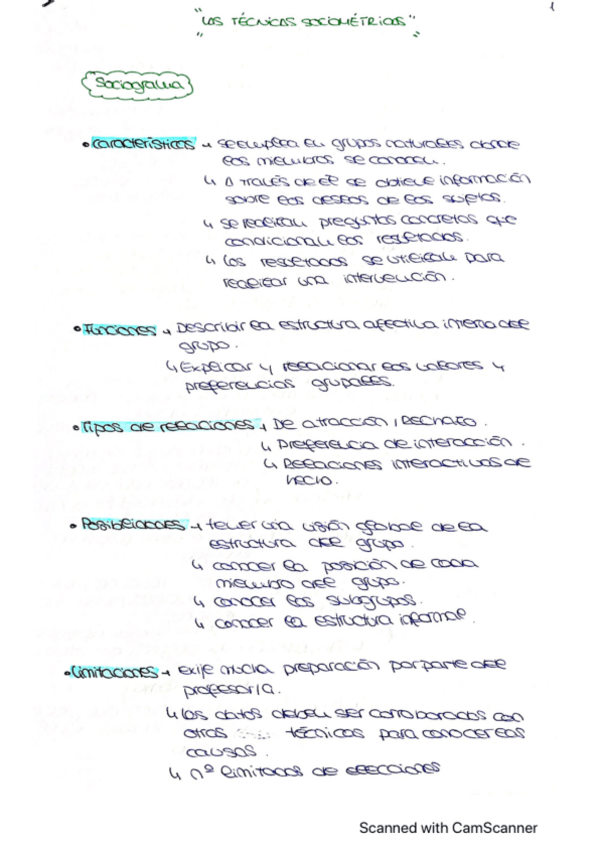 1
"LAS TÉCNICAS SOCIOMÉTRICAS"
Sociograma
• Características → se emplea en grupos naturales donde
los miembros se conocen.
↳ A través de él se obtiene información
sobre los deseos de los sujetos.
↳ se realizan preguntas concretas que
condicionan los resultados.
↳ los resultados se utilizan para
realizar una intervención.
• Funciones → Describir la estructura afectiva interna del
grupo.
↳ Explicar y relacionar los valores y
preferencias grupales.
• Tipos de relaciones → De atracción, Rechazo.
↳ Preferencia de interacción.
↳ Relaciones interactivas de
hecho.
• Posibilidades → tener una visión global de la
estructura del grupo.
↳ conocer la posición de cada
miembro del grupo.
↳ conocer los subgrupos.
↳ conocer la estructura informal.
• Limitaciones → exije mucha preparación por parte del
profesor/a.
↳ los datos deben ser corroborados con
otras técnicas para conocer las
causas.
↳ nº limitados de elecciones
Scanned with CamScanner